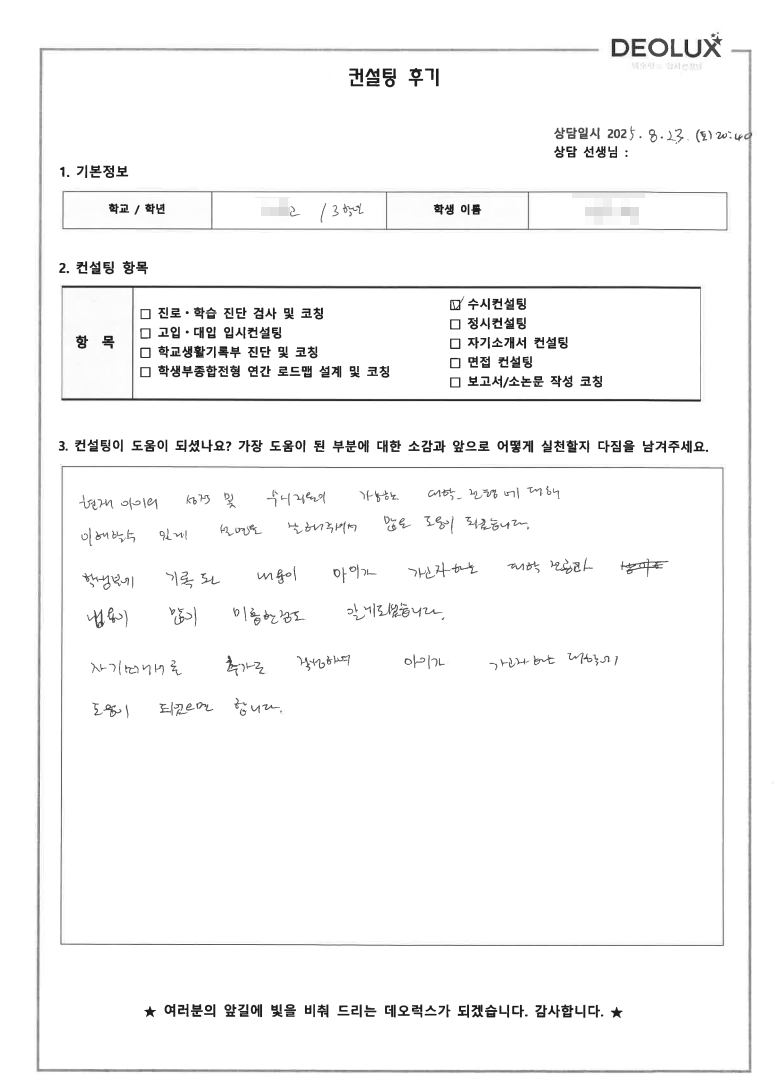 DEOLUX
컨설팅 후기
상담일시 2025. 8. 23. (토) 20:40
상담 선생님 :
1. 기본정보
학교 / 학년
고 / 3학년
학생 이름
2. 컨설팅 항목
항 목
□ 진로·학습 진단 검사 및 코칭
□ 고입·대입 입시컨설팅
□ 학교생활기록부 진단 및 코칭
□ 학생부종합전형 연간 로드맵 설계 및 코칭
☑ 수시컨설팅
□ 정시컨설팅
□ 자기소개서 컨설팅
□ 면접 컨설팅
□ 보고서/소논문 작성 코칭
3. 컨설팅이 도움이 되셨나요? 가장 도움이 된 부분에 대한 소감과 앞으로 어떻게 실천할지 다짐을 남겨주세요.
현재 아이의 성적 및 수시지원이 가능한 대학 전형에 대해
이해할수 있게 설명도 잘해주셔서 많은 도움이 되었습니다.
학생부에 기록된 내용이 아이가 가고자하는 대학 전공과
내용이 많이 미흡한점도 알게되었습니다.
추가로 작성하여 아이가 가고자 하는 대학에
도움이 되었으면 합니다.
★ 여러분의 앞길에 빛을 비춰 드리는 데오럭스가 되겠습니다. 감사합니다. ★